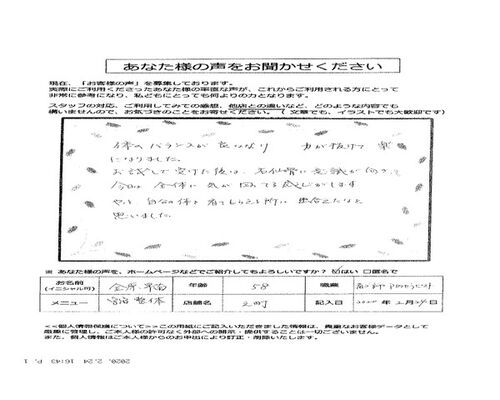 あなた様の声をお聞かせください
現在、「お客様の声」を募集しております。
実際にご利用くださったあなた様の率直な声が、これからご利用される方にとって
非常に参考になり、私どもにとっても何よりの力となります。
スタッフの対応、ご利用してみての感想、他店との違いなど、どのような内容でも
構いませんので、お気づきのことをお寄せください。(文章でも、イラストでも大歓迎です)
体のバランスが 良くなり 力が抜けて 楽
になりました。
お試しで受けた後は、
今回は 全体に 気が 回ってる感じがします
自分の体を 所に 出会えたなと
思いました。
※ あなた様の声を、ホームページなどでご紹介してもよろしいですか? はい □匿名で
お名前 (イニシャル可) 年齢 58 職業
メニュー 整体 店舗名 記入日 2020年 2月24日
<<個人情報保護について>>この用紙にご記入いただきました情報は、貴重なお客様データとして
厳重に管理し、ご本人様の許可なく外部への開示・提供することは一切ございません。
また、個人情報はご本人様からのお申出により訂正・削除いたします。
2020. 2.24 16:43 P. 1